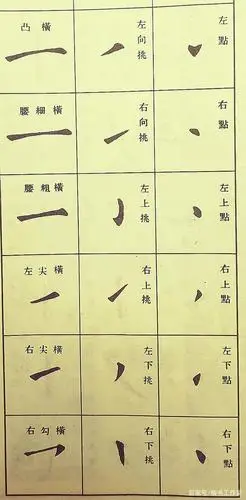 左點
右點
左上點
右上點
左下點
右下點
左向挑
右向挑
左上挑
右上挑
左下挑
右下挑
凸橫
腰細橫
腰粗橫
左尖橫
右尖橫
右勾橫